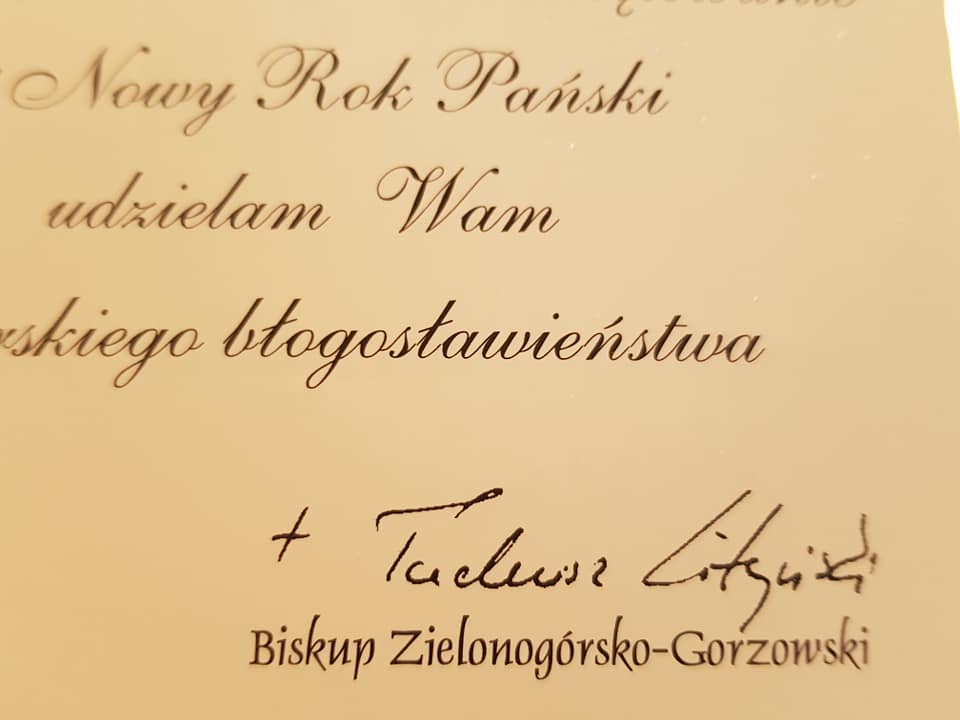 Nowy Rok Pański
udzielam Wam
błogosławieństwa
+ Tadeusz Lityński
Biskup Zielonogórsko-Gorzowski